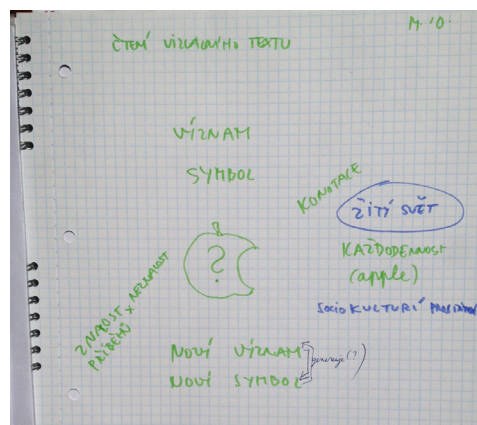 14. 10.
ČTENÍ VIZUÁLNÍHO TEXTU
VÝZNAM
SYMBOL
KONOTACE
ŽITÝ SVĚT
?
KAŽDODENNOST
(apple)
SOCIO KULTURÍ
ZNALOST x NEZNALOST
PŘÍBĚHŮ
NOVÍ VÝZNAM
NOVÍ SYMBOL
generuje (?)